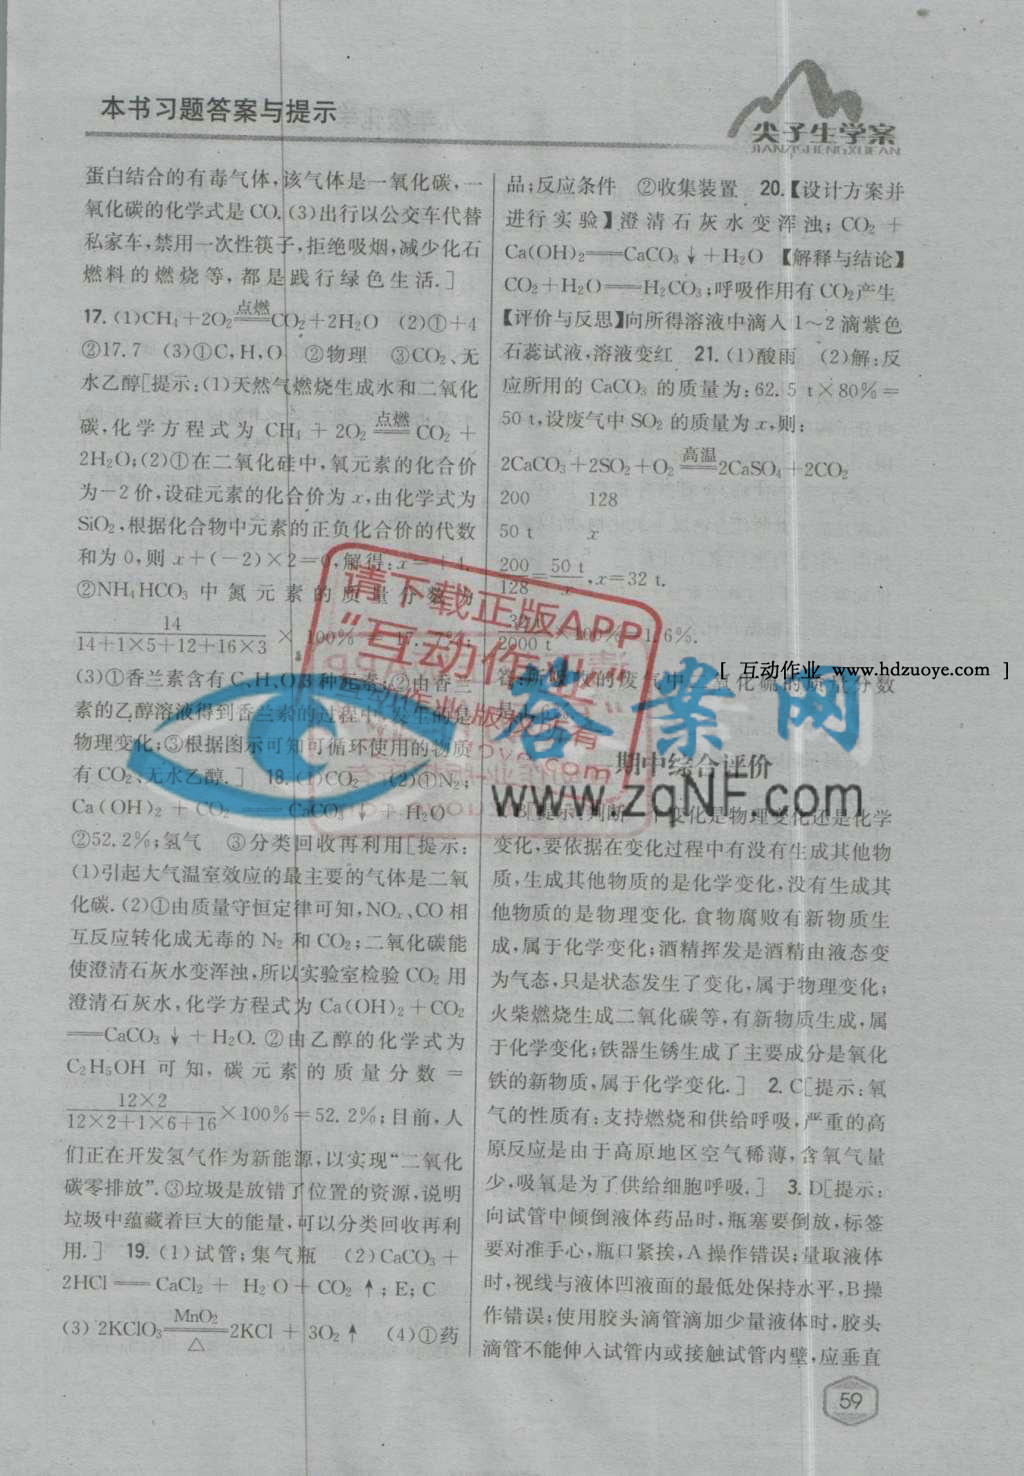 本书习题答案与提示
尖子生学案
JIANZISHENGXUEAN
蛋白结合的有毒气体,该气体是一氧化碳,一
氧化碳的化学式是CO.(3)出行以公交车代替
私家车,禁用一次性筷子,拒绝吸烟,减少化石
燃料的燃烧等,都是践行绿色生活.]
17.(1)CH₄+2O₂ 点燃 CO₂+2H₂O (2)①+4
②17.7 (3)①C,H,O ②物理 ③CO₂、无
水乙醇[提示:(1)天然气燃烧生成水和二氧化
碳,化学方程式为 CH₄+2O₂ 点燃 CO₂+
2H₂O;(2)①在二氧化硅中,氧元素的化合价
为-2价,设硅元素的化合价为x,由化学式为
SiO₂,根据化合物中元素的正负化合价的代数
和为0,则x+(-2)×2=0,解得:x=+4.
②NH₄HCO₃ 中氮元素的质量分数为
14/(14+1×5+12+16×3) × 100% = 17.7%;
(3)①香兰素含有C、H、O 3种元素;②由香兰
素的乙醇溶液得到香兰素的过程中,发生的是
物理变化;③根据图示可知可循环使用的物质
有CO₂、无水乙醇.] 18.(1)CO₂ (2)①N₂;
Ca(OH)₂ + CO₂ ═ CaCO₃↓ + H₂O
②52.2%;氢气 ③分类回收再利用[提示:
(1)引起大气温室效应的最主要的气体是二氧
化碳.(2)①由质量守恒定律可知,NOₓ、CO相
互反应转化成无毒的N₂ 和CO₂;二氧化碳能
使澄清石灰水变浑浊,所以实验室检验CO₂ 用
澄清石灰水,化学方程式为Ca(OH)₂+CO₂
═CaCO₃↓+H₂O. ②由乙醇的化学式为
C₂H₅OH 可知,碳元素的质量分数=
12×2/(12×2+1×6+16)×100%=52.2%;目前,人
们正在开发氢气作为新能源,以实现“二氧化
碳零排放”.③垃圾是放错了位置的资源,说明
垃圾中蕴藏着巨大的能量,可以分类回收再利
用.] 19.(1)试管;集气瓶 (2)CaCO₃+
2HCl ═ CaCl₂ + H₂O+CO₂↑;E;C
(3) 2KClO₃ MnO₂ △ 2KCl + 3O₂↑ (4)①药
品;反应条件 ②收集装置 20.【设计方案并
进行实验】澄清石灰水变浑浊;CO₂ +
Ca(OH)₂═CaCO₃↓+H₂O 【解释与结论】
CO₂+H₂O═H₂CO₃;呼吸作用有CO₂产生
【评价与反思】向所得溶液中滴入1~2滴紫色
石蕊试液,溶液变红 21.(1)酸雨 (2)解:反
应所用的CaCO₃的质量为:62.5 t×80%=
50 t,设废气中SO₂的质量为x,则:
2CaCO₃+2SO₂+O₂ 高温 2CaSO₄+2CO₂
200 128
50 t x
200/128=50 t/x,x=32 t.
32 t/2000 t×100%=1.6%.
答:所吸收的废气中二氧化硫的质量分数
是
期中综合评价
B[提示:判断一个变化是物理变化还是化学
变化,要依据在变化过程中有没有生成其他物
质,生成其他物质的是化学变化,没有生成其
他物质的是物理变化.食物腐败有新物质生
成,属于化学变化;酒精挥发是酒精由液态变
为气态,只是状态发生了变化,属于物理变化;
火柴燃烧生成二氧化碳等,有新物质生成,属
于化学变化;铁器生锈生成了主要成分是氧化
铁的新物质,属于化学变化.] 2.C[提示:氧
气的性质有:支持燃烧和供给呼吸,严重的高
原反应是由于高原地区空气稀薄,含氧气量
少,吸氧是为了供给细胞呼吸.] 3.D[提示:
向试管中倾倒液体药品时,瓶塞要倒放,标签
要对准手心,瓶口紧挨,A操作错误;量取液体
时,视线与液体凹液面的最低处保持水平,B操
作错误;使用胶头滴管滴加少量液体时,胶头
滴管不能伸入试管内或接触试管内壁,应垂直
59
请下载正版APP
“互动作业”
互动作业·版权所有
答案网
www.zqNF.com
[ 互动作业 www.hdzuoye.com ]